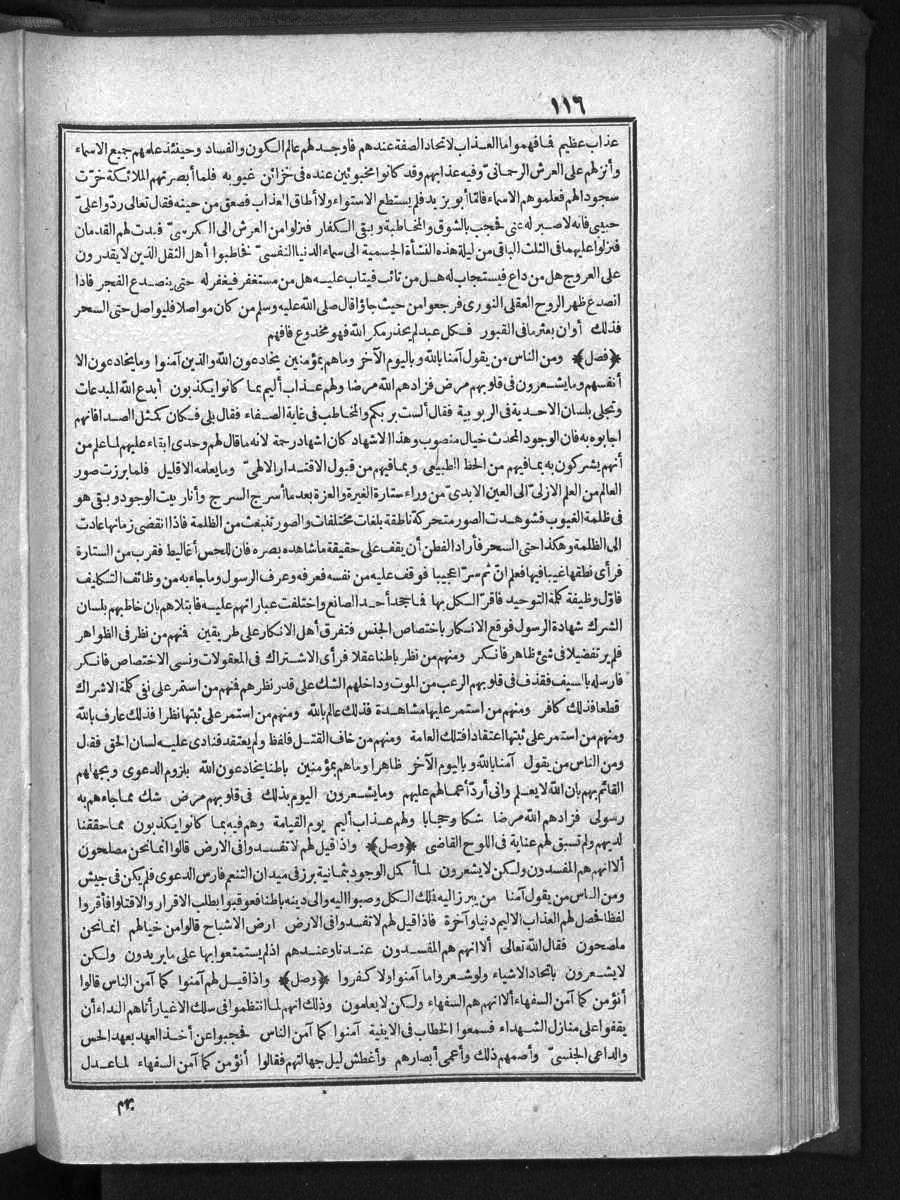 ١١٦
عذاب عظيم فافهموا ما العذاب لاتحاد الصفة عندهم فاوجد لهم عالم الكون والفساد وحينئذ علمهم جميع الاسماء
وأنزلهم على العرش الرحمانىّ وفيه عذابهم وقد كانوا مخبوئين عنده فى خزائن غيوبه فلما أبصرتهم الملائكة خرّت
سجودا لهم فعلموهم الاسماء فاتما أبو يزيد فلم يستطع الاستواء ولا أطاق العذاب فصعق من حينه فقال تعالى ردّوا علىّ
حبيبى فانه لا صبر له عنى فحجب بالشوق والمخاطبة وبقى الكفار فنزلوا من العرش الى الكرسىّ فبدت لهم القدمان
فنزلوا عليهما فى الثلث الباقى من ليلة هذه النشأة الجسمية الى سماء الدنيا النفسىّ فخاطبوا أهل الثقل الذين لا يقدرون
على العروج هل من داع فيستجاب له هل من تائب فيتاب عليه هل من مستغفر فيغفر له حتى ينصدع الفجر فاذا
انصدع ظهر الروح العقلى النورى فرجعوا من حيث جاؤا قال صلى الله عليه وسلم من كان مواصلا فليواصل حتى السحر
فذلك أوان بعثر ما فى القبور فكل عبد لم يحذر مكر الله فهو مخدوع فافهم
﴿فصل﴾ ومن الناس من يقول آمنا بالله وباليوم الآخر وما هم بمؤمنين يخادعون الله والذين آمنوا وما يخادعون الا
أنفسهم وما يشعرون فى قلوبهم مرض فزادهم الله مرضا ولهم عذاب أليم بما كانوا يكذبون أبدع الله المبدعات
وتجلى بلسان الاحدية فى الربوبية فقال ألست بربكم والمخاطب فى غاية الصفاء فقال بلى فكان كمثل الصدا فانهم
اجابوه به فان الوجود المحدث خيال منصوب وهذا الاشهاد كان اشهاد رحمة لانه ما قال لهم وحدى ابقاء عليهم لما علم من
أنهم يشركون به بما فيهم من الحظ الطبيعى وبما فيهم من قبول الاقتدار الالهىّ وما يعلمه الاقليل فلما برزت صور
العالم من العلم الازلىّ الى العين الابدىّ من وراء ستارة الغيرة والعزة بعد ما أسرج السرج وأنار بيت الوجود وبقى هو
فى ظلمة الغيوب فشوهدت الصور متحركة ناطقة بلغات مختلفات والصور تنبعث من الظلمة فاذا انقضى زمانها عادت
الى الظلمة وهكذا حتى السحر فأراد الفطن أن يقف على حقيقة ما شاهده بصره فان للحس أغاليط فقرب من الستارة
فرأى نطقها غيبا فيها فعلم انّ ثم سرّا عجيبا فوقف عليه من نفسه فعرفه وعرف الرسول وما جاء به من وظائف التكليف
فاوّل وظيفة كلمة التوحيد فاقرّ الكل بها فما جحد أحد الصانع واختلفت عباراتهم عليه فابتلاهم بان خاطبهم بلسان
الشرك شهادة الرسول فوقع الانكار باختصاص الجنس فتفرق أهل الانكار على طريقين فنهم من نظر فى الظواهر
فلم ير تفضيلا فى شئ ظاهر فانكر ومنهم من نظر باطنا عقلا فرأى الاشتراك فى المعقولات ونسى الاختصاص فانكر
فارسله بالسيف فقذف فى قلوبهم الرعب من الموت وداخلهم الشك على قدر نظرهم فنهم من استمر على نفى كلمة الاشراك
قطعا فذلك كافر ومنهم من استمر عليها مشاهدة فذلك عالم بالله ومنهم من استمر على ثبتها نظرا فذلك عارف بالله
ومنهم من استمر على ثبتها اعتقادا فتلك العامة ومنهم من خاف القتل فلفظ ولم يعتقد فنادى عليه لسان الحق فقال
ومن الناس من يقول آمنا بالله وباليوم الآخر ظاهرا وما هم بمؤمنين باطنا يخادعون الله بلزوم الدعوى وبجهلهم
القائم بهم بان الله لا يعلم وانى أردّ أعمالهم عليهم وما يشعرون اليوم بذلك فى قلوبهم مرض شك مما جاءهم به
رسولى فزادهم الله مرضا شكا وحجابا ولهم عذاب أليم يوم القيامة وهم فيه بما كانوا يكذبون مما حققنا
لديهم ولم تسبق لهم عناية فى اللوح القاضى ﴿وصل﴾ واذا قيل لهم لا تفسدوا فى الارض قالوا انما نحن مصلحون
ألا انهم هم المفسدون ولكن لا يشعرون لما أكمل الوجود بثمانية برز فى ميدان التنعم فارس الدعوى فلم يكن فى جيش
ومن الناس من يقول آمنا من يبرز اليه فلك الكل وصبوا اليه والى دينه باطنا فعوقبوا بطلب الاقرار والاقتلوا فأقروا
لفظا فحصل لهم العذاب الاليم دنيا وآخرة فاذا قيل لهم لا تفسدوا فى الارض ارض الاشباح قالوا من خيالهم انما نحن
مصلحون فقال الله تعالى ألا انهم هم المفسدون عندنا وعندهم اذ لم يستمتعوا بها على ما يريدون ولكن
لا يشعرون باتحاد الاشياء ولو شعروا ما آمنوا ولا كفروا ﴿وصل﴾ واذا قيل لهم آمنوا كما آمن الناس قالوا
أنؤمن كما آمن السفهاء ألا انهم هم السفهاء ولكن لا يعلمون وذلك انهم لما انتظموا فى سلك الاغيار أتاهم النداء أن
يقفوا على منازل الشهداء فسمعوا الخطاب فى الاينية آمنوا كما آمن الناس فحجبوا عن أخذ العهد بعهد الحس
والداعى الجنسىّ وأصمهم ذلك وأعمى أبصارهم وأغطش ليل جهالتهم فقالوا أنؤمن كما آمن السفهاء لما عدل